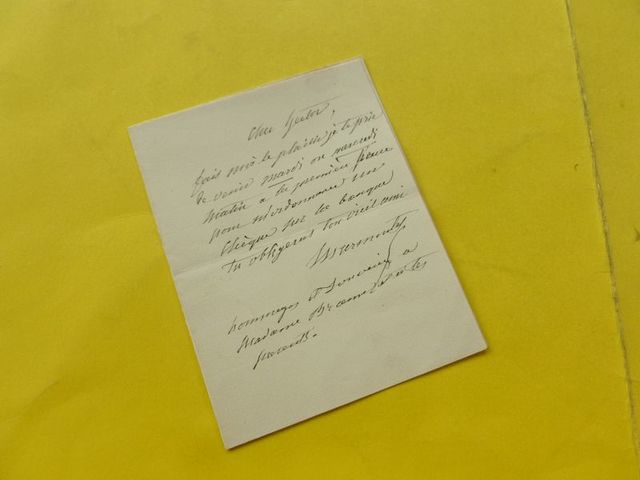 Cher Hector,
fais moi le plaisir je te prie
de venir mardi ou mercredi
matin a la première heure
pour m'ordonnancer un
chèque sur la banque
tu obligeras ton vieil ami
Marmontel
hommages et souvenirs a
Madame et a tes
parents.